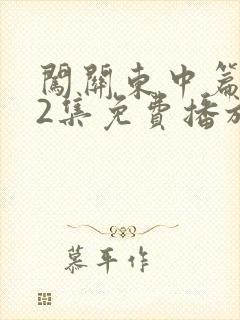 闖關東中篇
2集免費播放
慕平作